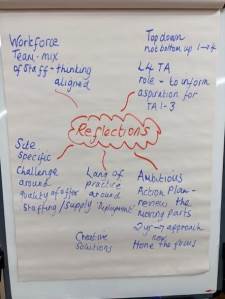 Workforce
Team-mix
of Staff - thinking
aligned
Top down
not bottom up 1→4
L4 TA
role - to inform
aspiration for
TA 1-3
Reflections
Site
Specific
Challenge
around
quality of offer
Staffing/Supply
Lang of
practice
around
Deployment
Ambitious
Action Plan -
review the
Moving Parts
2yr → approach
now
Hone the focus
Creative
Solutions